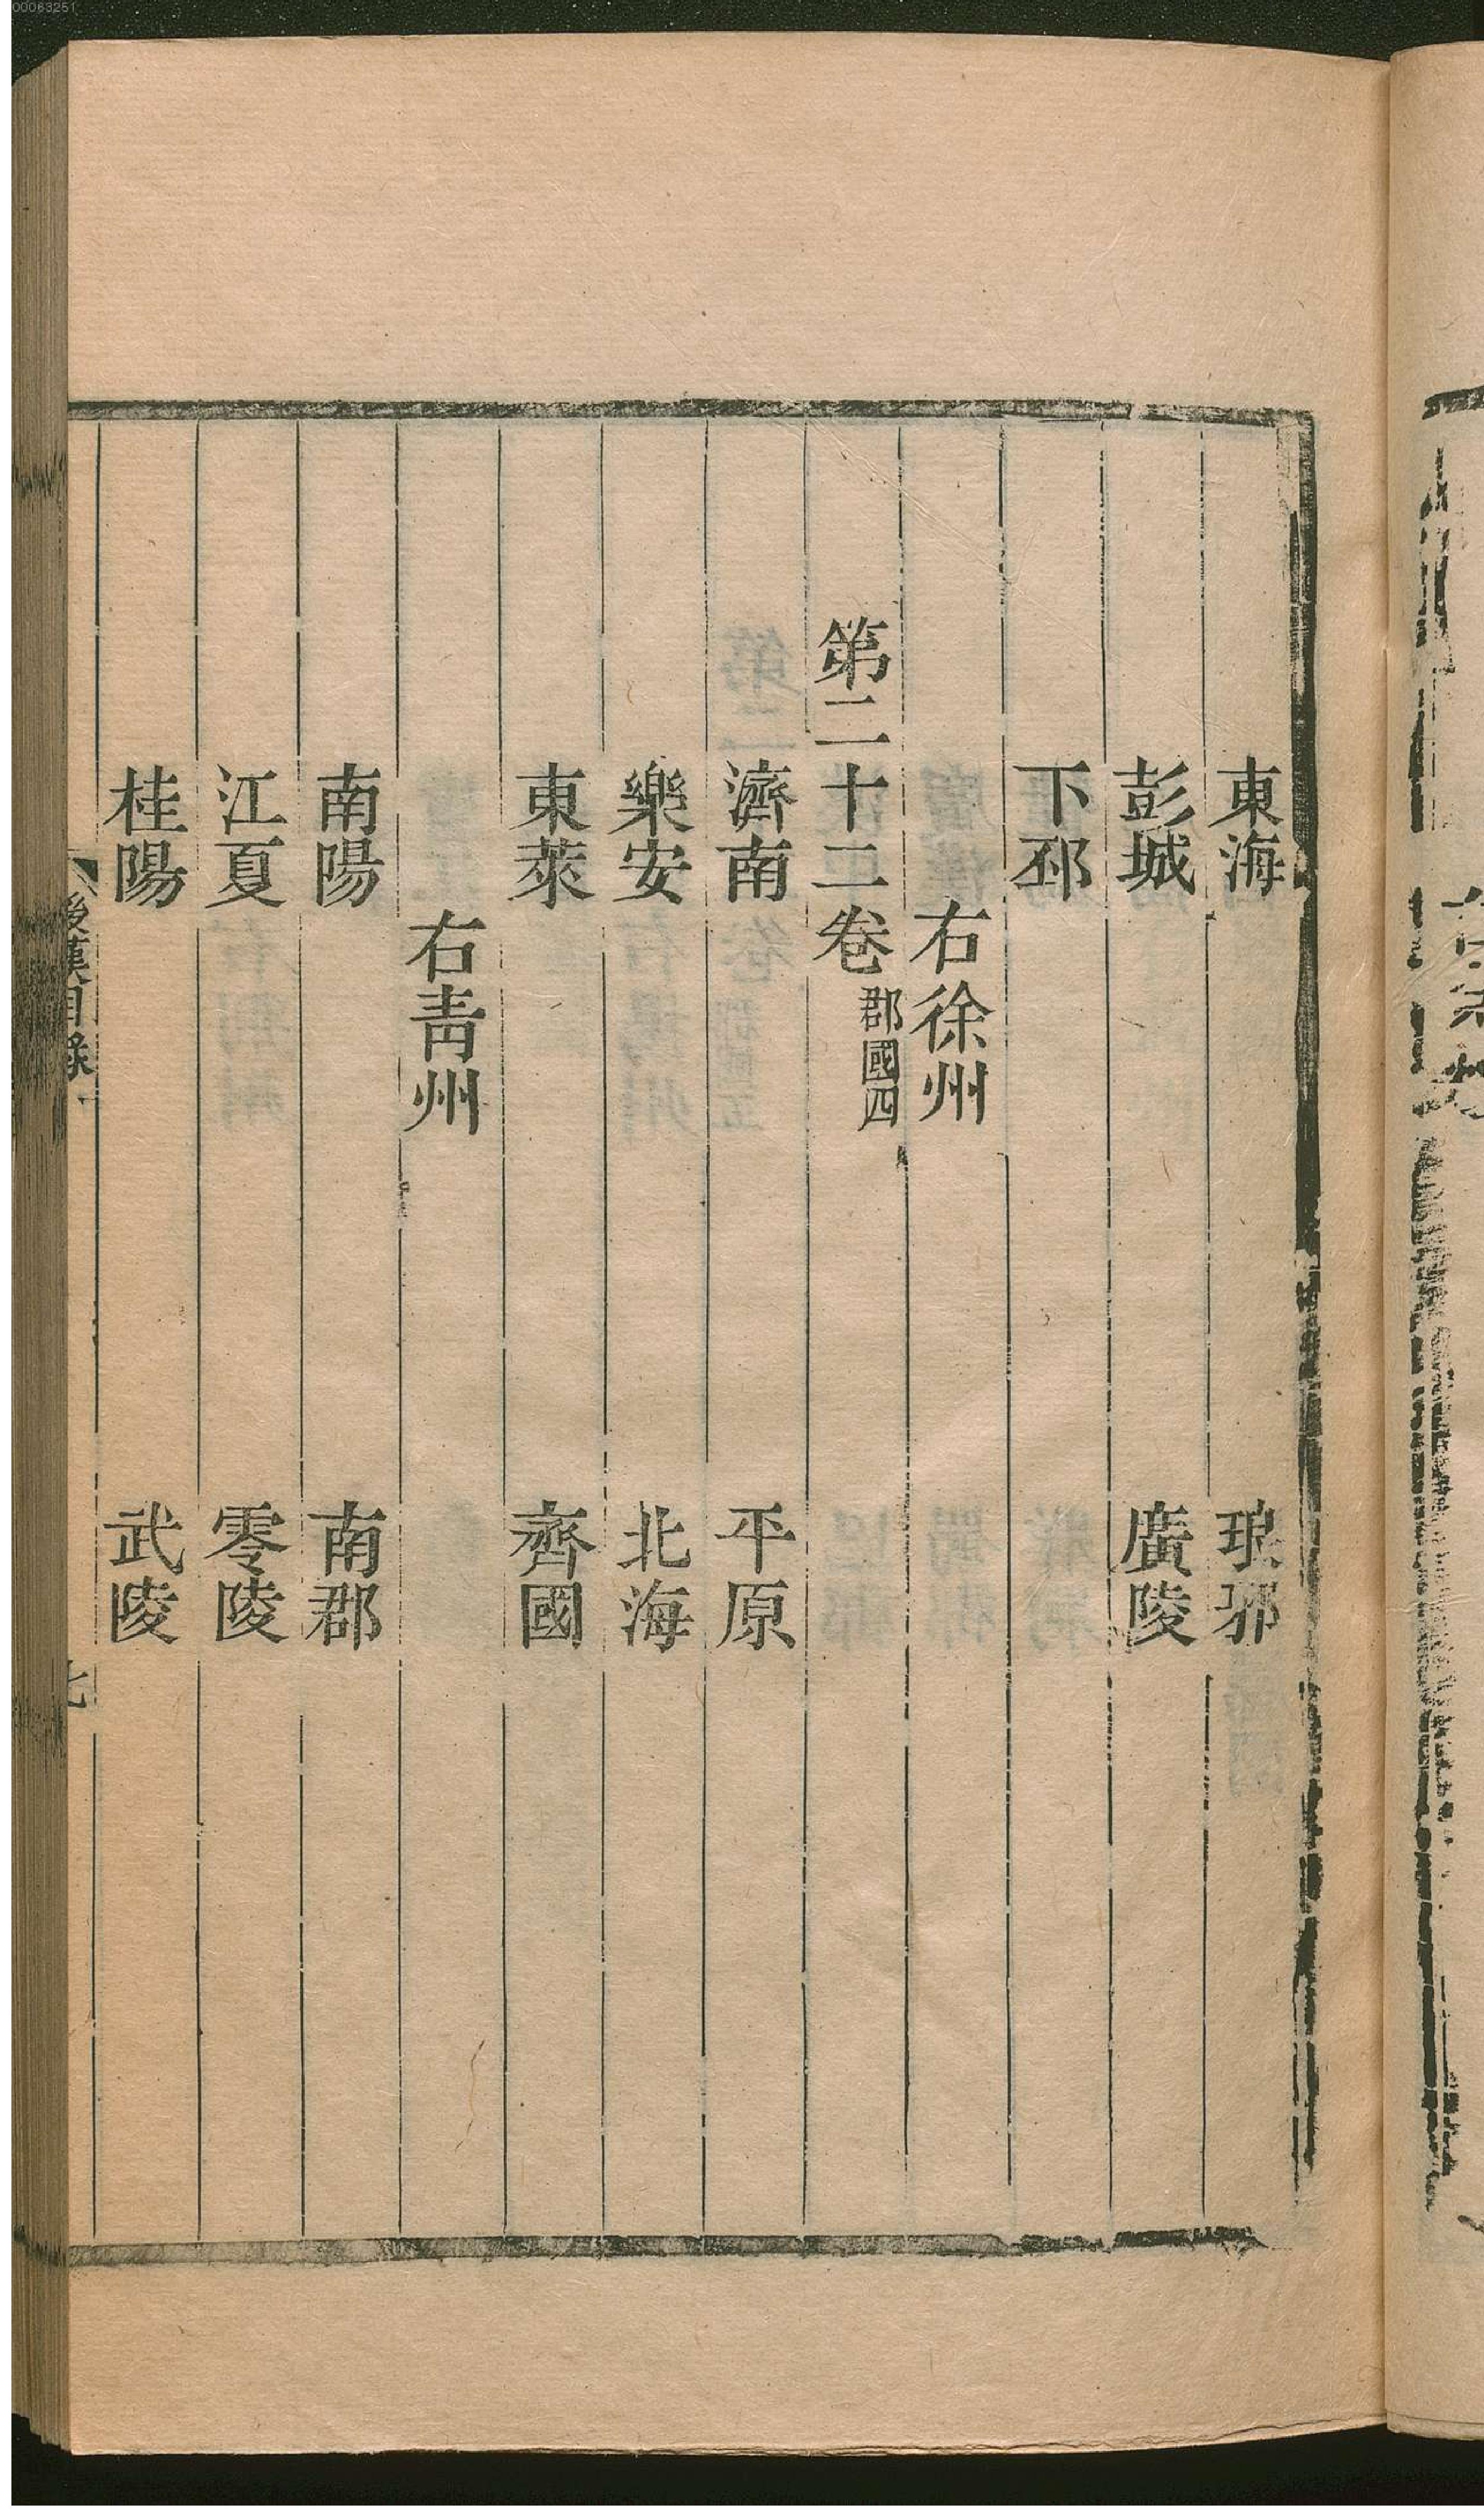 東海 琅邪
彭城 廣陵
下邳
右徐州
第二十二卷 郡國四
濟南 平原
樂安 北海
東萊 齊國
右靑州
南陽 南郡
江夏 零陵
桂陽 武陵
後漢目錄 七
00063251